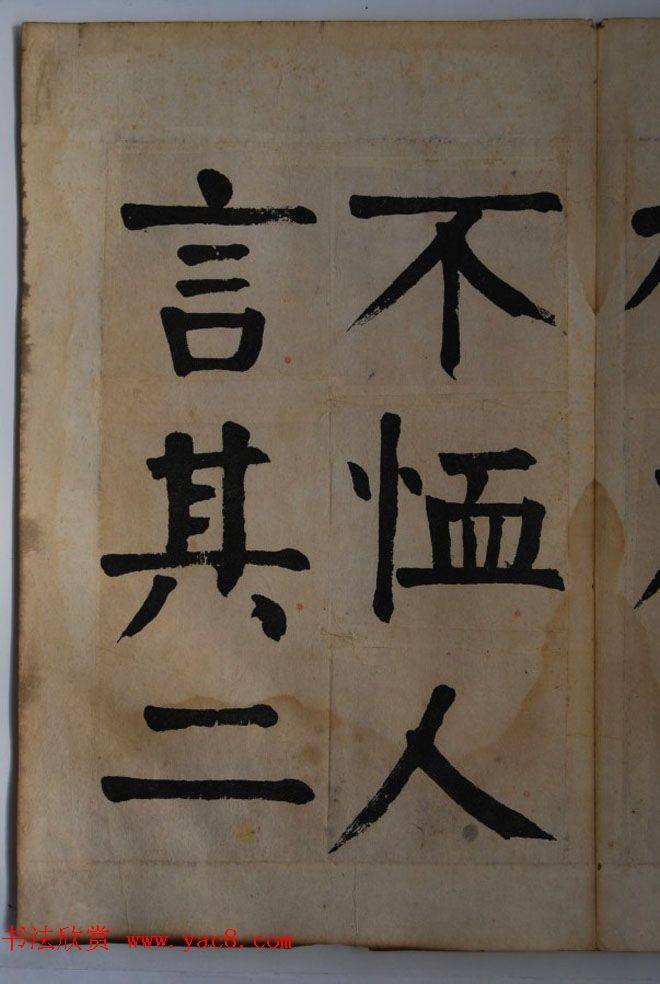 不恤人
言其二
书法欣赏 www.yac8.com